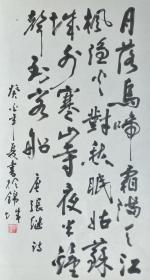 月落烏啼霜滿天江
楓漁火對愁眠姑蘇
城外寒山寺夜半鐘
聲到客船 唐張繼詩
癸年夏書於錦城